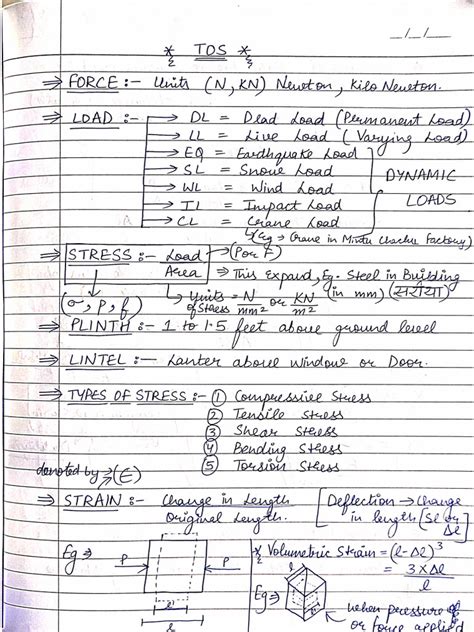 _/_/_
* TOS *
⇒ FORCE :- Units (N, KN) Newton, Kilo Newton.
⇒ LOAD :- → DL = Dead Load (Permanent Load)
→ LL = Live Load (Varying Load)
→ EQ = Earthquake Load
→ SL = Snow Load
→ WL = Wind Load
→ IL = Impact Load
→ CL = Crane Load
DYNAMIC
LOADS
Eg → Crane in Mintu Chachu Factory)
⇒ STRESS :- Load → (P or F)
Area ⇒ This Expand, Eg. Steel in Building
(σ, P, f) → Units of Stress = N/mm² or KN/m² (in mm) (सरीया)
⇒ PLINTH :- 1 to 1.5 feet above ground level
⇒ LINTEL :- Lanter above Window or Door.
⇒ TYPES OF STRESS :- ① Compressive Stress
② Tensile Stress
③ Shear Stress
④ Bending Stress
⑤ Torsion Stress
denoted by → (E)
⇒ STRAIN :- Change in Length
Original Length.
[Deflection → Change
in length (Sl or Δl]
Eg ⇒ P P
* Volumetric Strain = (l-Δl)³
= 3×Δl
l
Eg ⇒ l
when pressure
or force applied